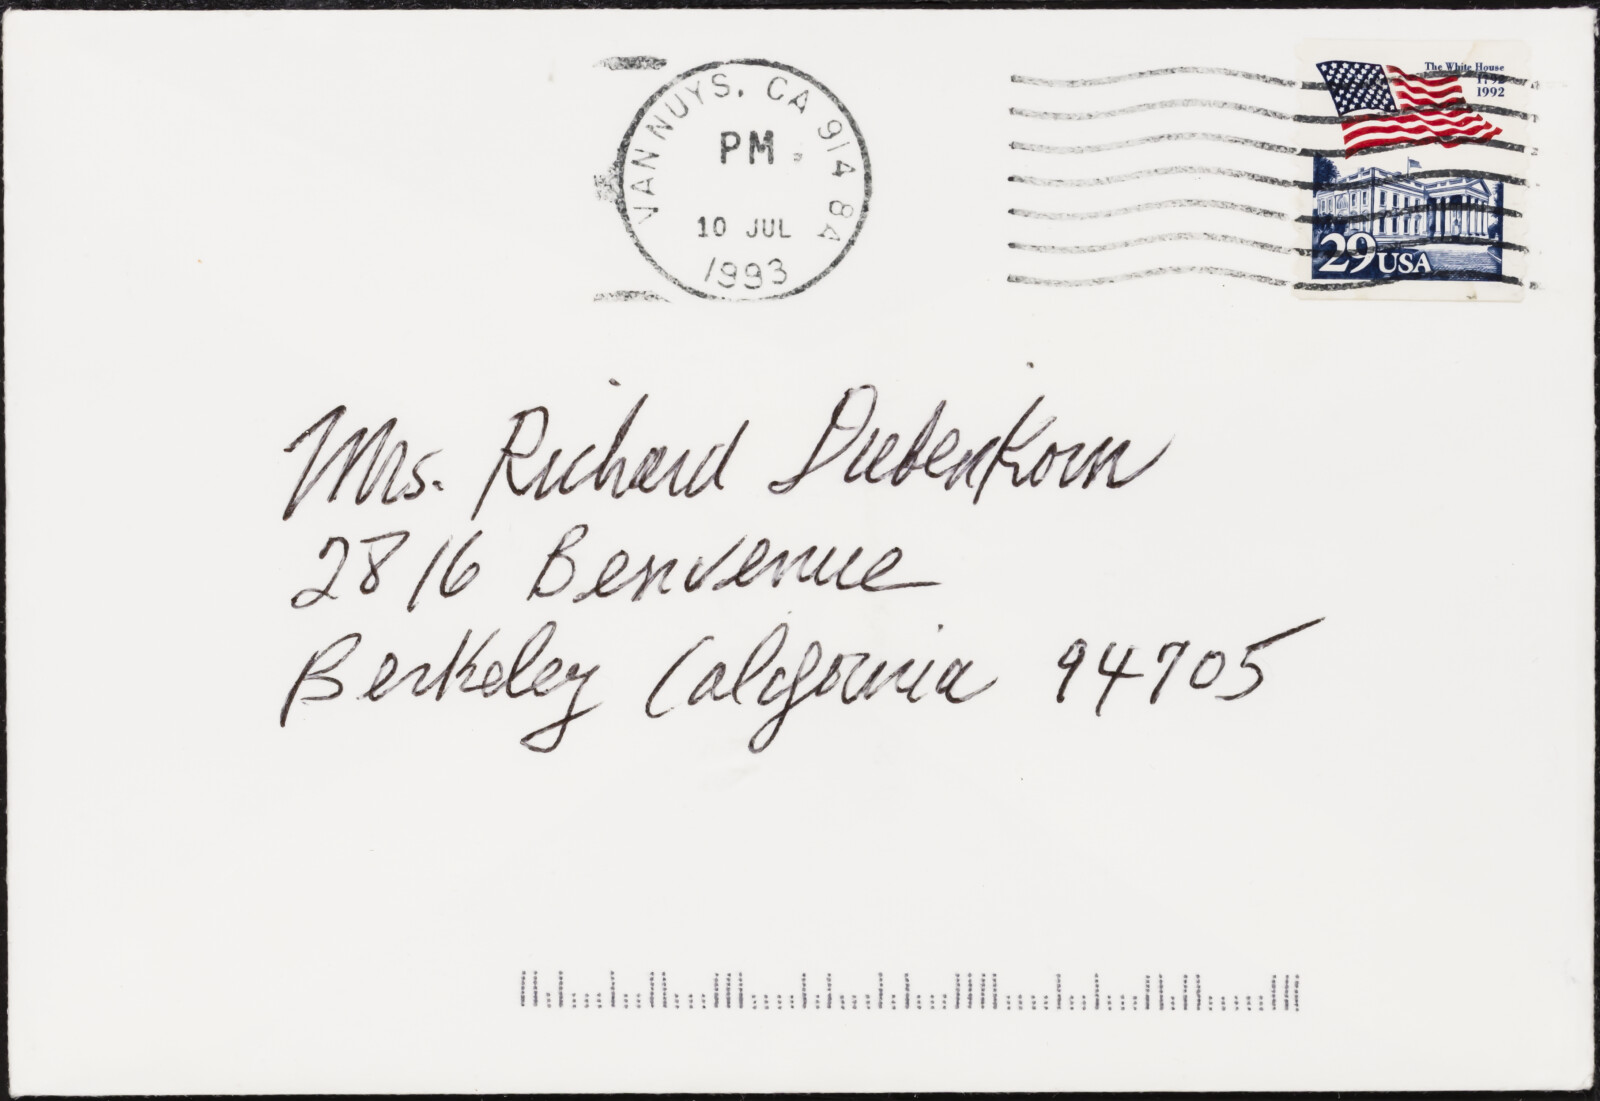 VAN NUYS, CA 914 84
PM
10 JUL
1993
The White House
1792
1992
29 USA
Mrs. Richard Diebenkorn
2816 Benvenue
Berkeley California 94705